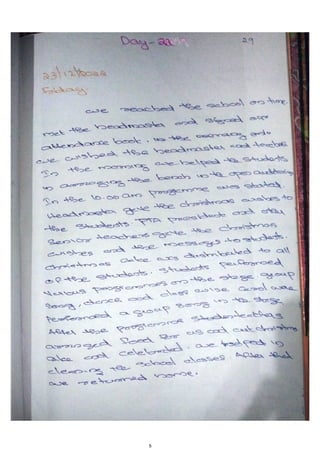 Day-22 29
23/12/2022
Friday
We reached the school on time.
met the headmaster and signed our
attendance book. in the morning
we wished the headmaster and teachers
In the morning we helped to students
in arranging the bench in to open auditorium
In the 10.00 am programme was started
Headmaster gave the christmas wishes to
the students. PTA president and other
Senior teachers gave the Christmas
wishes and the messages to students.
Christmas cake was distributed to all
of the students. Students performed
various programmes on the stage group
song, dance and class wise carol. we
performed a group song in the stage.
After the programme student teachers
arranged food for us and cut christmas
cake and celebrated. we helped in
cleaning the school classes. After that
we returned home.
5